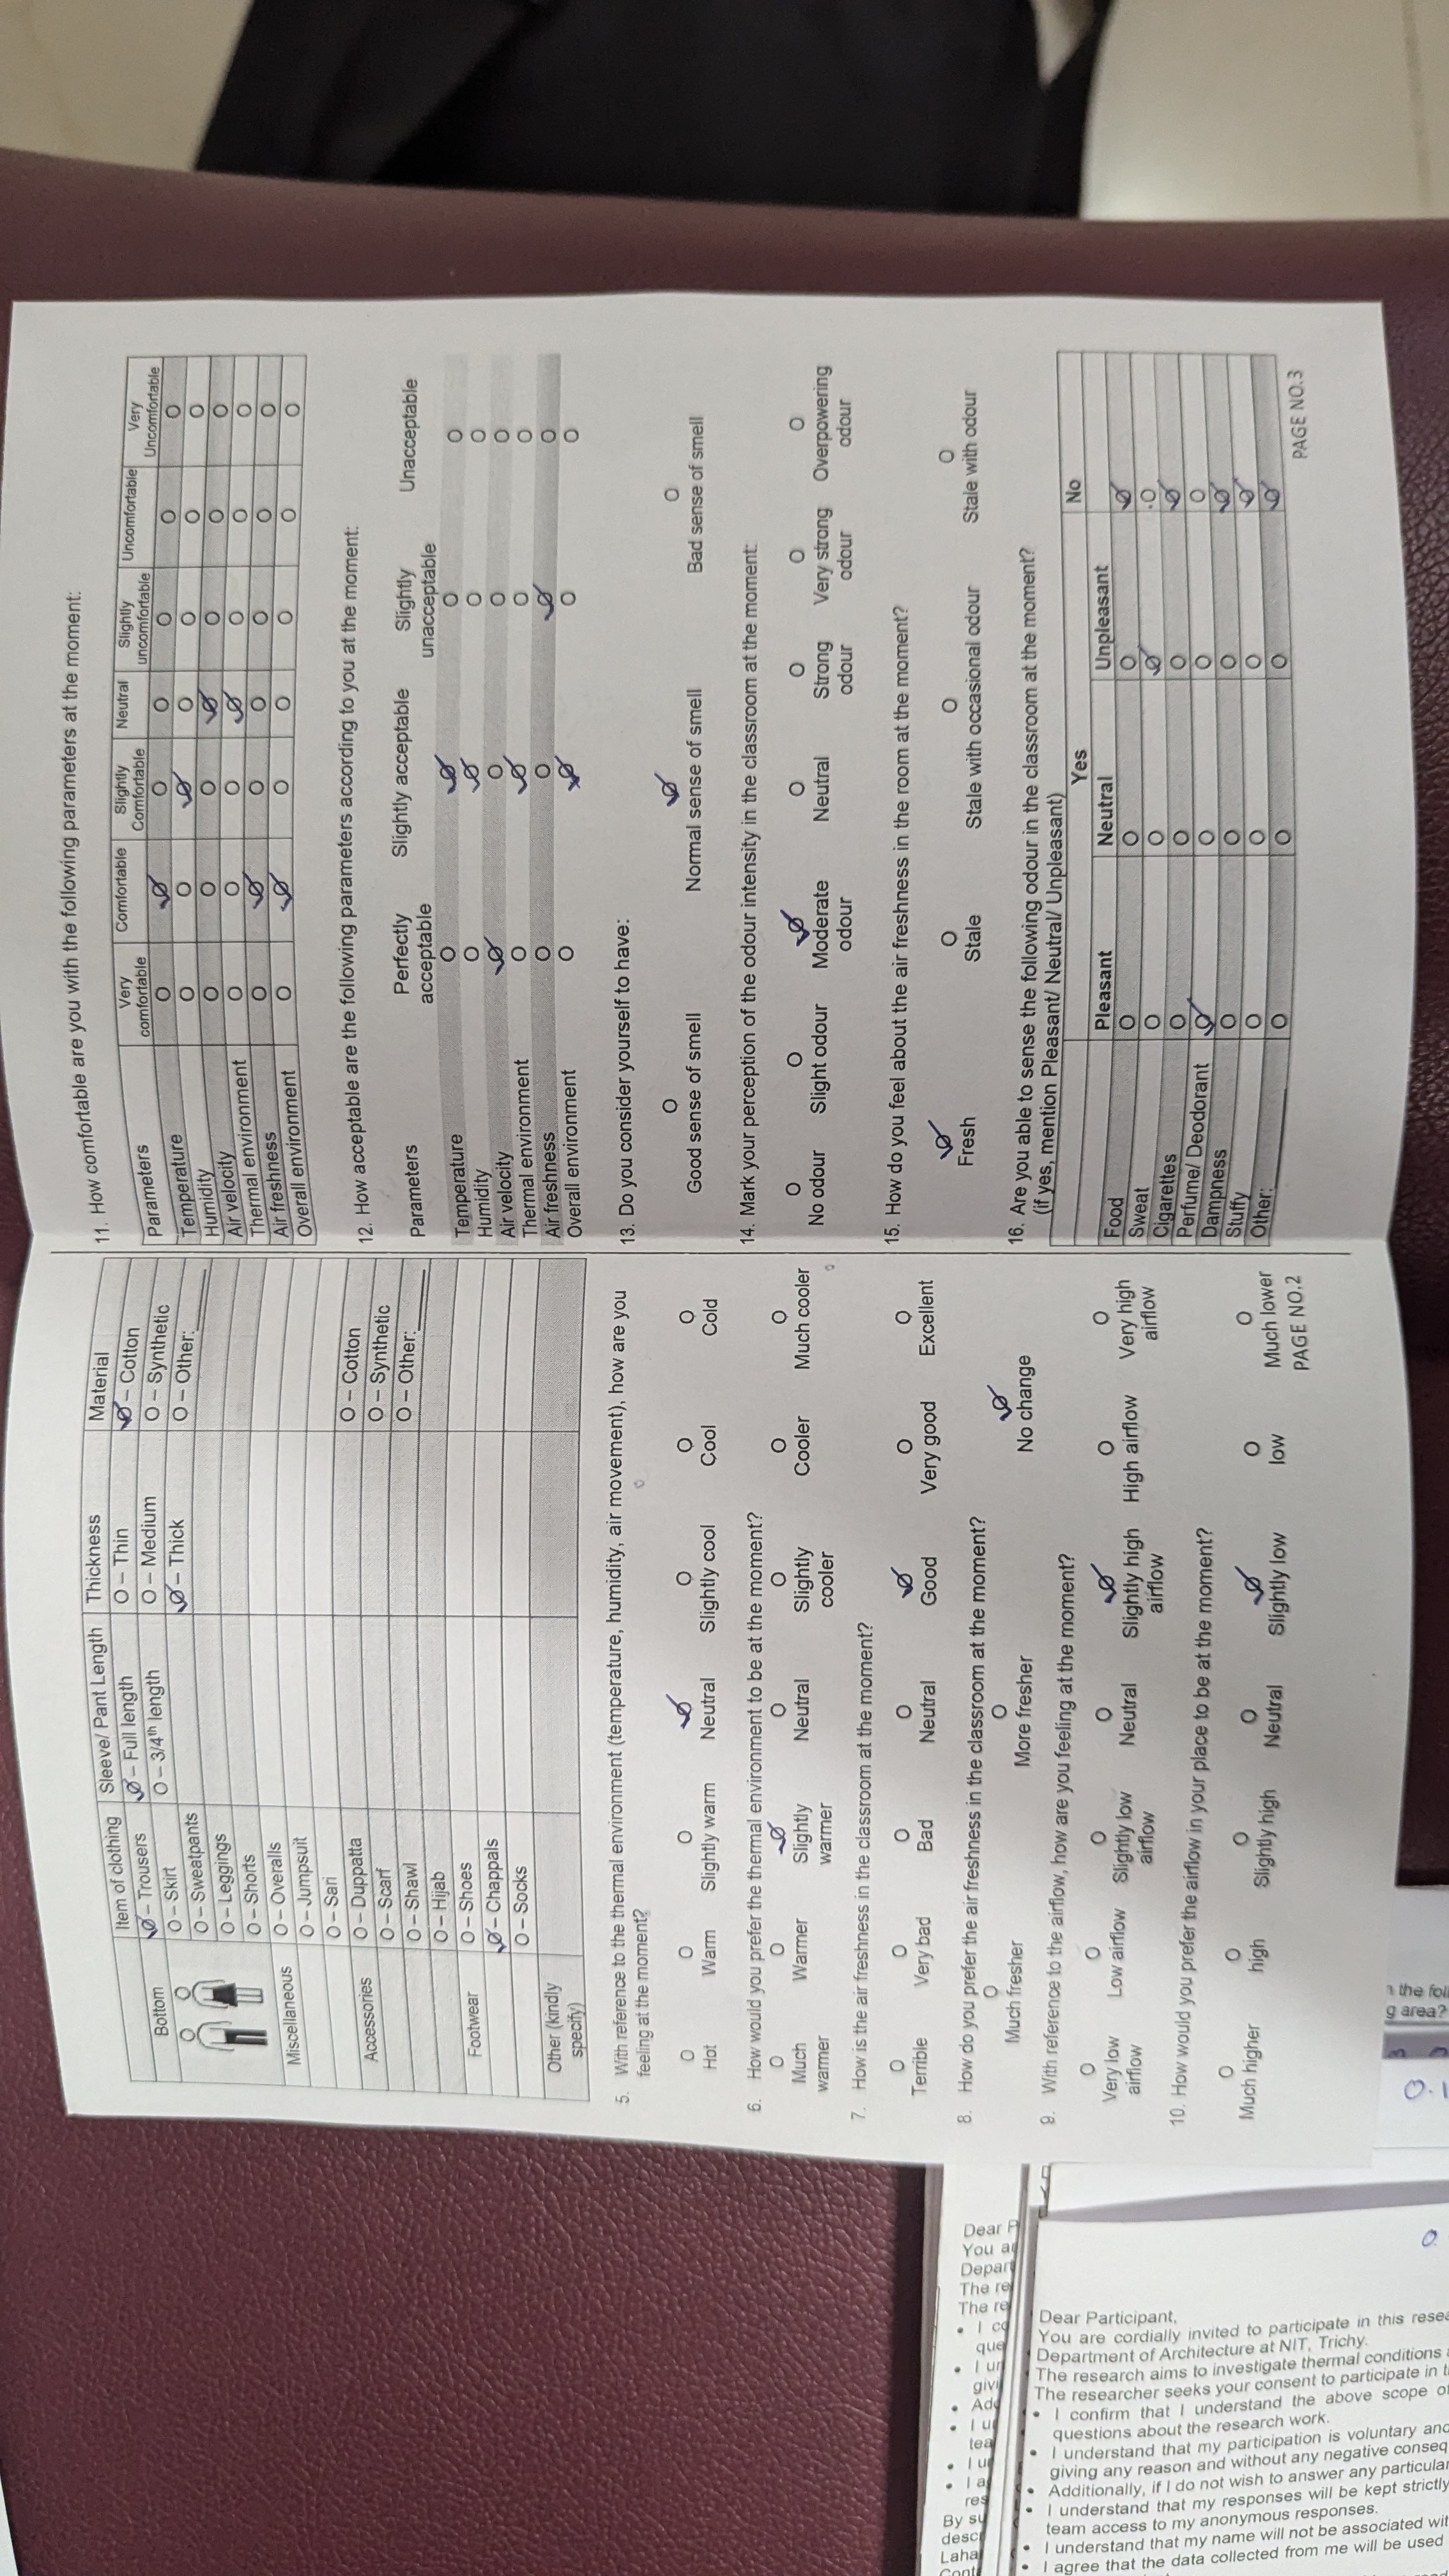 Item of clothing Sleeve/ Pant Length Thickness Material
Bottom
O – Trousers O – Full length O – Thin O – Cotton
O – Skirt O – 3/4th length O – Medium O – Synthetic
O – Sweatpants O – Thick O – Other:
O – Leggings
O – Shorts
Miscellaneous
O – Overalls
O – Jumpsuit
O – Sari
Accessories
O – Duppatta O – Cotton
O – Scarf O – Synthetic
O – Shawl O – Other:
O – Hijab
Footwear
O – Shoes
O – Chappals
O – Socks
Other (kindly
specify)
5. With reference to the thermal environment (temperature, humidity, air movement), how are you
feeling at the moment?
O O O O O O O
Hot Warm Slightly warm Neutral Slightly cool Cool Cold
6. How would you prefer the thermal environment to be at the moment?
O O O O O O O
Much Warmer Slightly Neutral Slightly Cooler Much cooler
warmer warmer cooler
7. How is the air freshness in the classroom at the moment?
O O O O O O O
Terrible Very bad Bad Neutral Good Very good Excellent
8. How do you prefer the air freshness in the classroom at the moment?
O O O
Much fresher More fresher No change
9. With reference to the airflow, how are you feeling at the moment?
O O O O O O O
Very low Low airflow Slightly low Neutral Slightly high High airflow Very high
airflow airflow airflow airflow
10. How would you prefer the airflow in your place to be at the moment?
O O O O O O O
Much higher high Slightly high Neutral Slightly low low Much lower
PAGE NO.2
11. How comfortable are you with the following parameters at the moment:
Parameters Very Comfortable Slightly Neutral Slightly Uncomfortable Very
comfortable Comfortable uncomfortable Uncomfortable
Temperature O O O O O O O
Humidity O O O O O O O
Air velocity O O O O O O O
Thermal environment O O O O O O O
Air freshness O O O O O O O
Overall environment O O O O O O O
12. How acceptable are the following parameters according to you at the moment:
Parameters Perfectly Slightly acceptable Slightly Unacceptable
acceptable unacceptable
Temperature O O O O
Humidity O O O O
Air velocity O O O O
Thermal environment O O O O
Air freshness O O O O
Overall environment O O O O
13. Do you consider yourself to have:
O O O
Good sense of smell Normal sense of smell Bad sense of smell
14. Mark your perception of the odour intensity in the classroom at the moment:
O O O O O O O
No odour Slight odour Moderate Neutral Strong Very strong Overpowering
odour odour odour odour
15. How do you feel about the air freshness in the room at the moment?
O O O O
Fresh Stale Stale with occasional odour Stale with odour
16. Are you able to sense the following odour in the classroom at the moment?
(if yes, mention Pleasant/ Neutral/ Unpleasant)
Yes No
Pleasant Neutral Unpleasant
Food O O O O
Sweat O O O O
Cigarettes O O O O
Perfume/ Deodorant O O O O
Dampness O O O O
Stuffy O O O O
Other: O O O O
PAGE NO.3
Dear P
You ar
Depart
The re
The re
• I co
que
• I un
givi
• Add
• I un
tea
• I un
• I a
res
By su
desc
Laha
Dear Participant,
You are cordially invited to participate in this resea
Department of Architecture at NIT, Trichy.
The research aims to investigate thermal conditions
The researcher seeks your consent to participate in t
• I confirm that I understand the above scope of
questions about the research work.
• I understand that my participation is voluntary and
giving any reason and without any negative conseq
• Additionally, if I do not wish to answer any particular
• I understand that my responses will be kept strictly
team access to my anonymous responses.
• I understand that my name will not be associated wit
• I agree that the data collected from me will be used
the foll
g area?